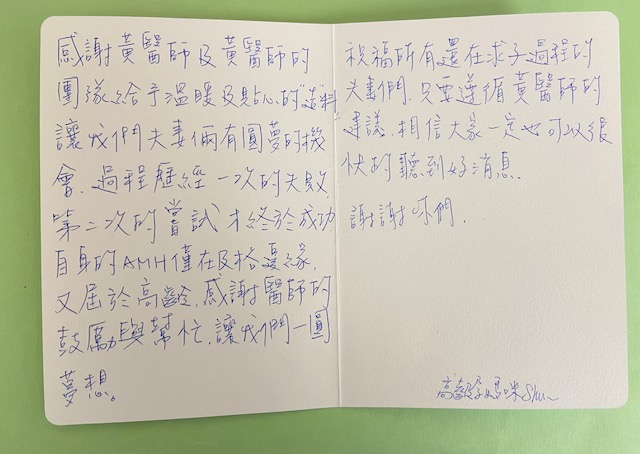 感謝黃醫師及黃醫師的
團隊給予溫暖及貼心的"資料"
讓我們夫妻倆有圓夢的機
會. 過程歷經一次的失敗.
第二次的嘗試才終於成功
自身的AMH僅在及格邊緣.
又屆於高齡. 感謝醫師的
鼓勵與幫忙. 讓我們一圓
夢想。
祝福所有還在求子過程的
夫妻們. 只要遵循黃醫師的
建議. 相信大家一定也可以很
快的聽到好消息.
謝謝你們.
高齡孕媽咪